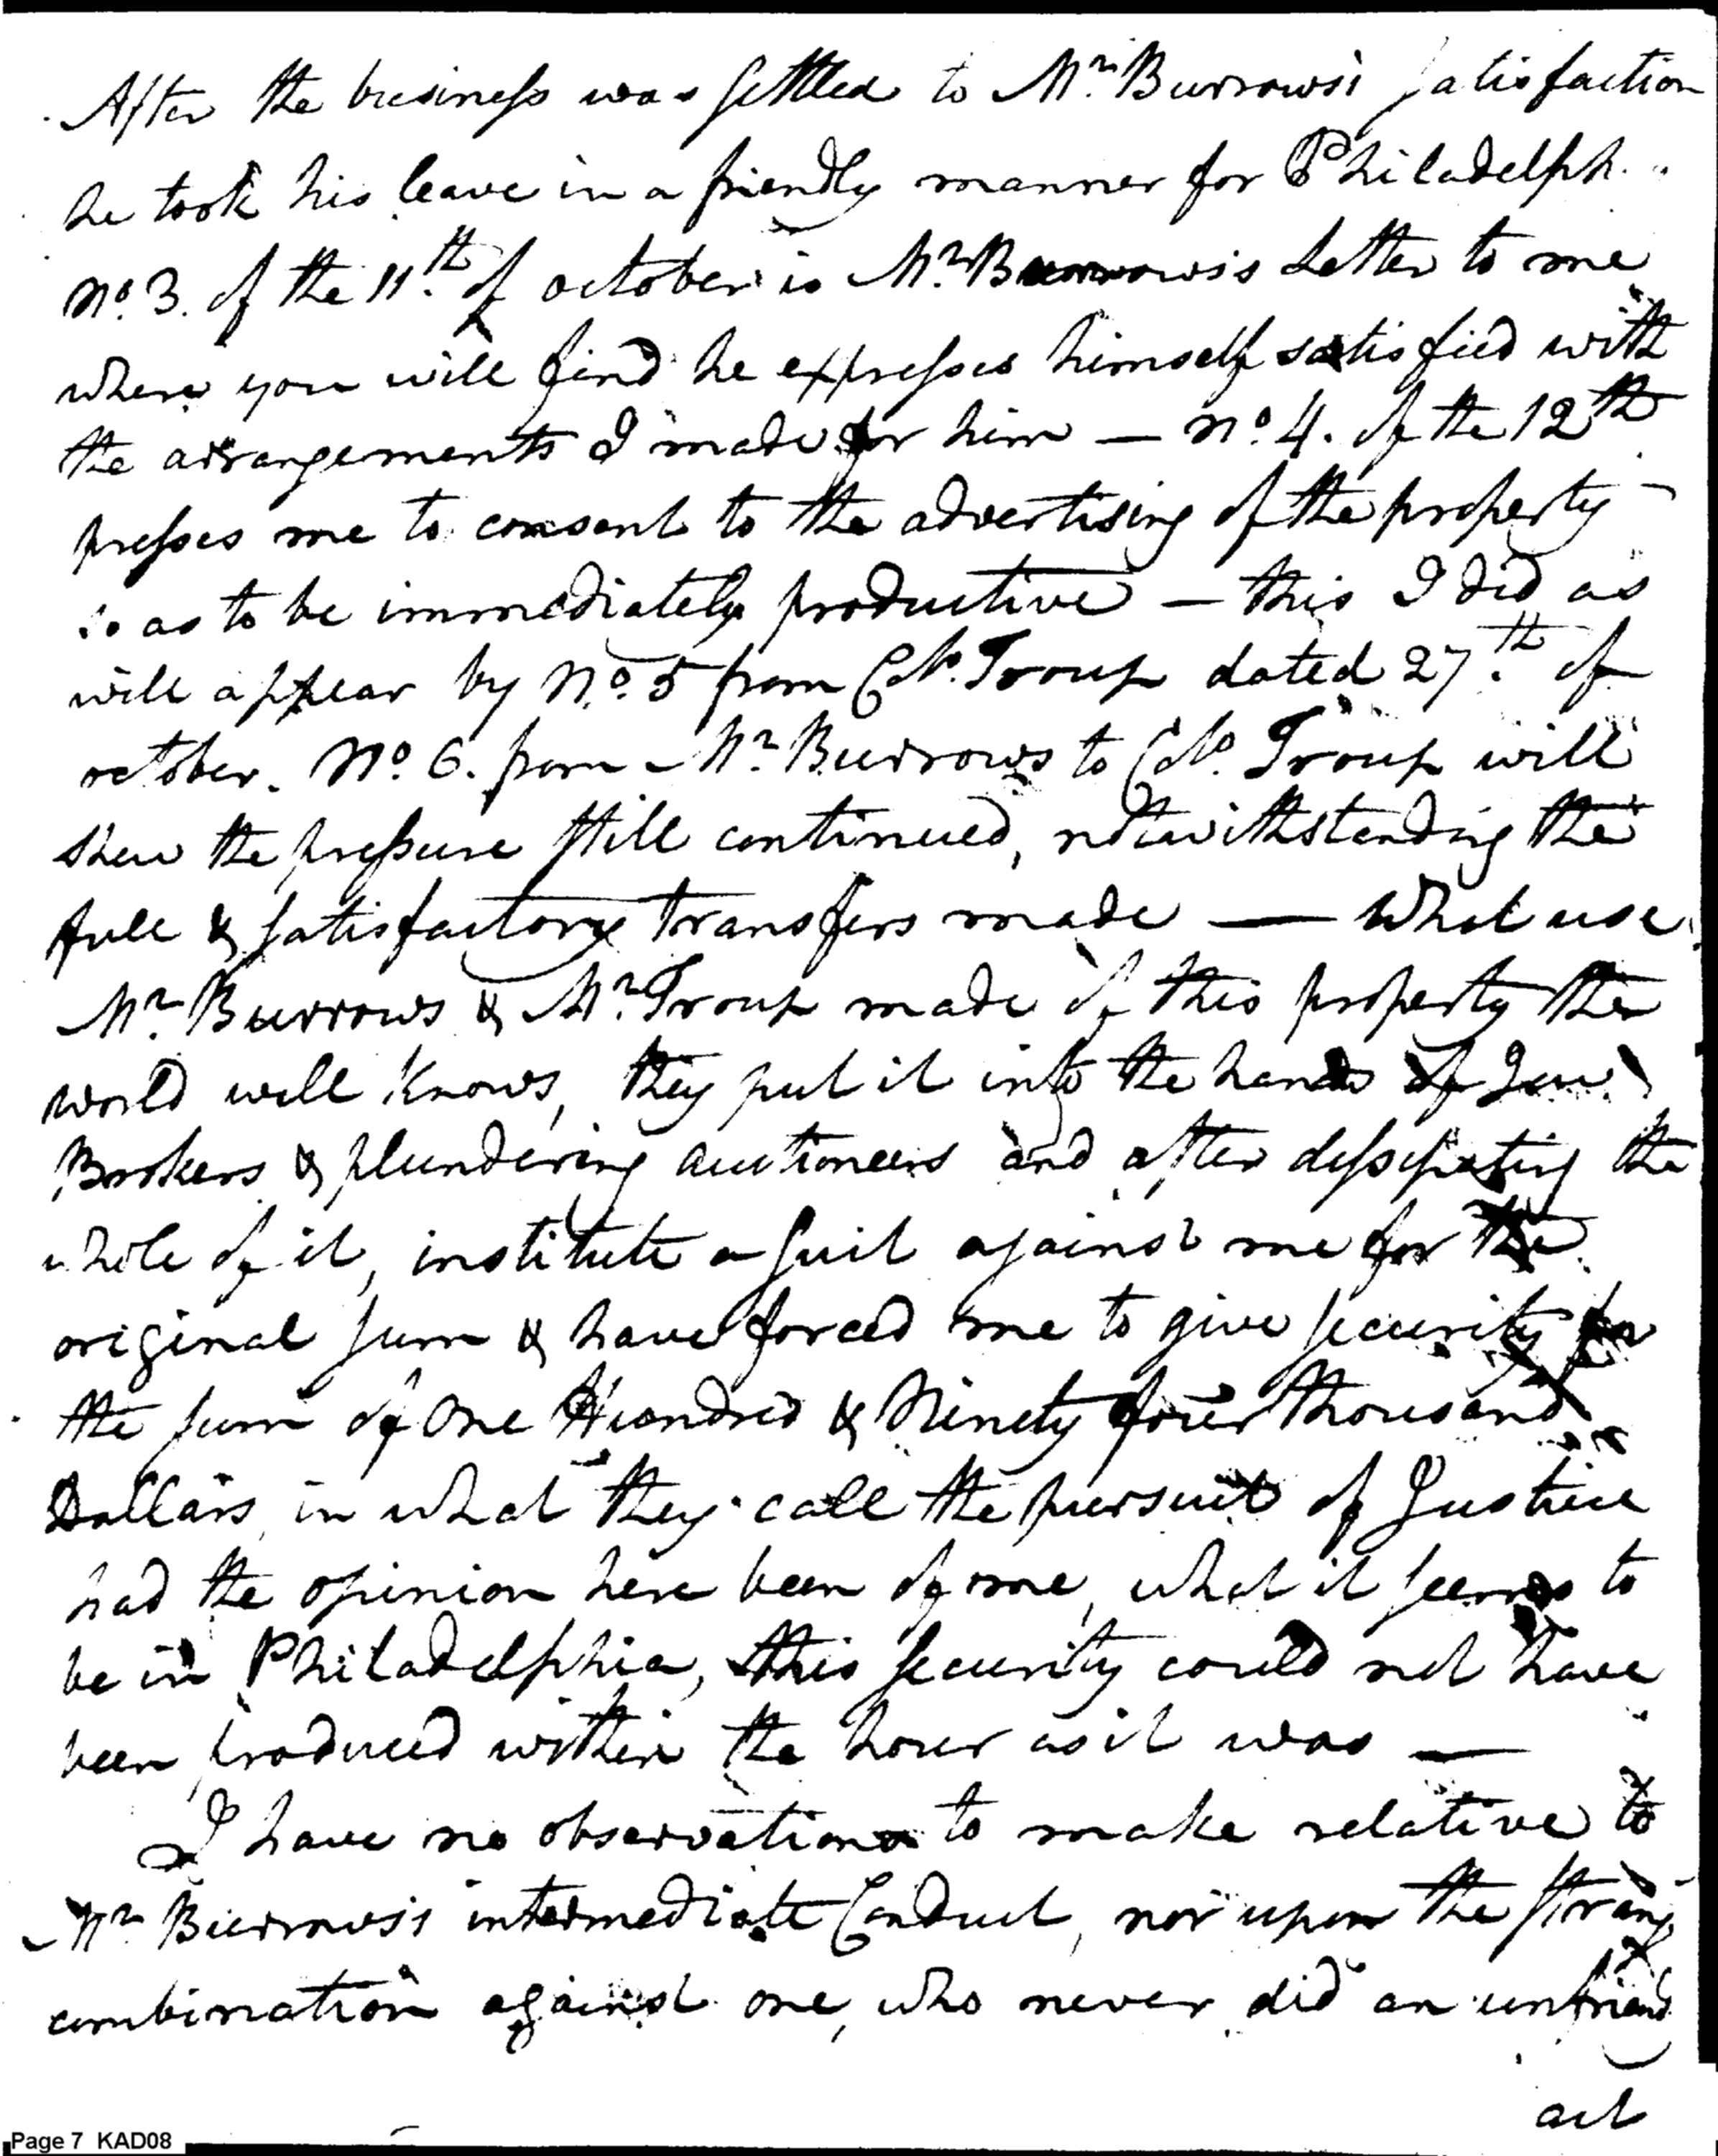 After the business was settled to Mr. Burrows's satisfaction
he took his leave in a friendly manner for Philadelph
No. 3. of the 11.th of october is Mr. Burrows's Letter to me
where you will find he expresses himself satisfied with
the arrangements I made for him — No. 4. of the 12th
presses me to consent to the advertising of the property
so as to be immediately productive — this I did as
will appear by No. 5 from Colo. Troup dated 27.th of
october. No. 6. from Mr. Burrows to Colo. Troup will
shew the pressure still continued, notwithstanding the
full & satisfactory transfers made — What use
Mr. Burrows & Mr. Troup made of this property the
world well knows, they put it into the hands of Jew
Brokers & plundering auctioneers and after dissipating the
whole of it, institute a suit against me for the
original sum & have forced me to give security for
the sum of One Hundred & Ninety four thousand
Dollars in what they call the pursuit of Justice
had the opinion here been of me, what it seems to
be in Philadelphia, this security could not have
been produced within the hour as it was —
I have no observations to make relative to
Mr Burrows's intermediate Conduct, nor upon the strang
combination against one, who never did an unfriend
act
Page 7 KAD08